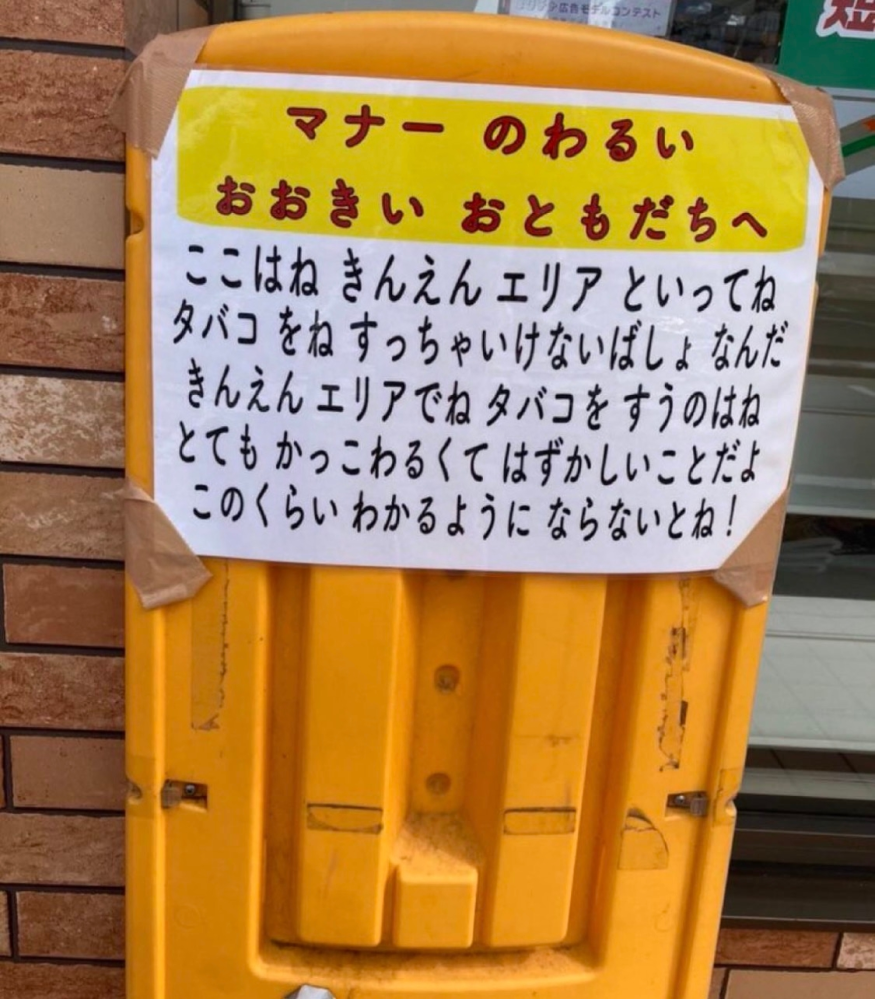 マナー のわるい
おおきい おともだちへ
ここはね きんえん エリア といってね
タバコ をね すっちゃいけないばしょ なんだ
きんえん エリアでね タバコを すうのはね
とても かっこわるくて はずかしいことだよ
このくらい わかるように ならないとね！